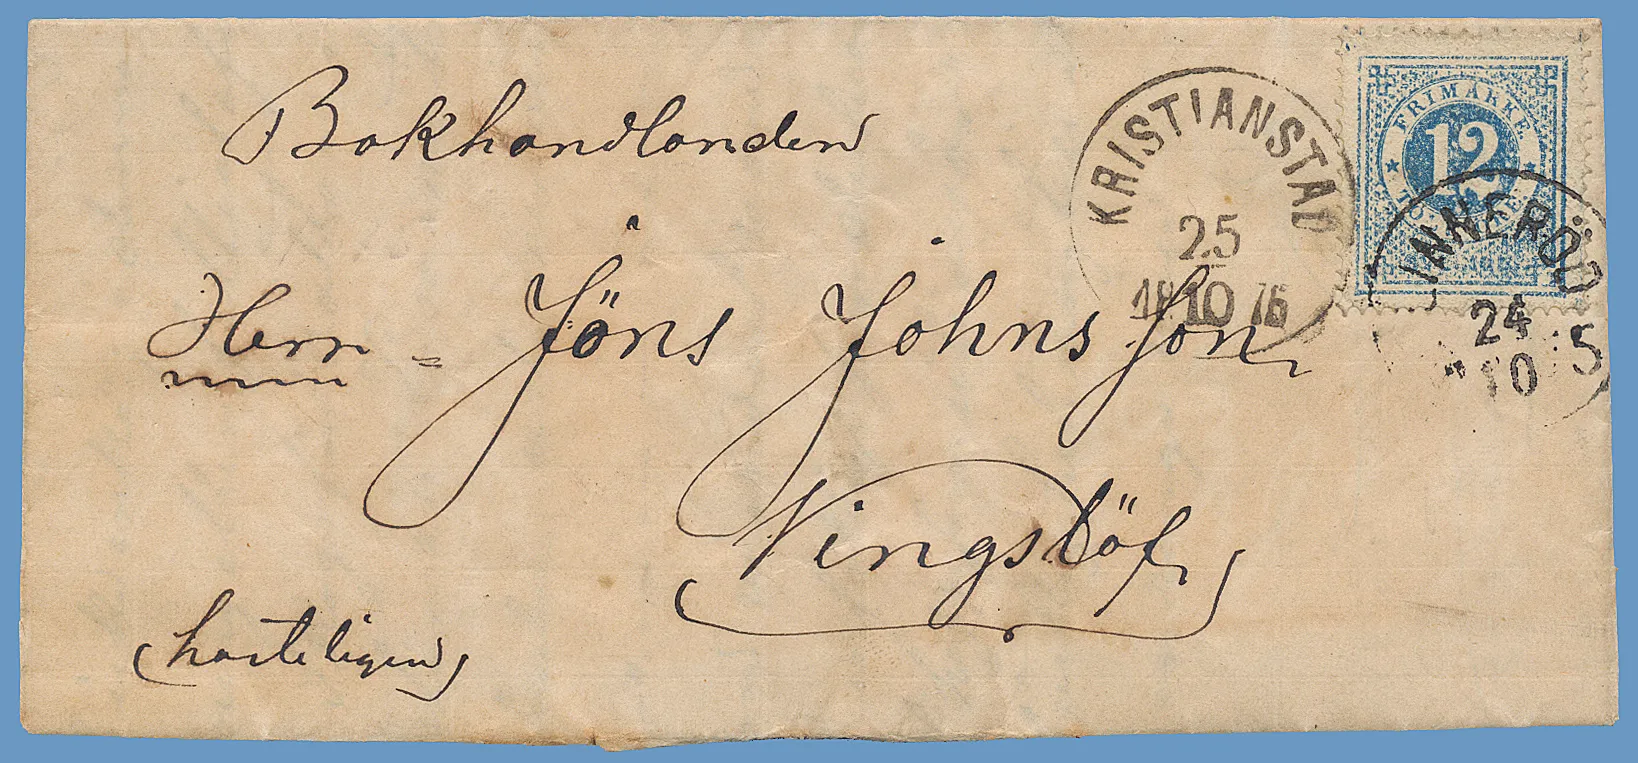 Bokhandlanden
Herr = Jöns Johnsson
Vingslöf
(hasteligen)
KRISTIANSTAD
25
18 10 76
FRIMÄRKE
12
INNERÖD
24
10
5